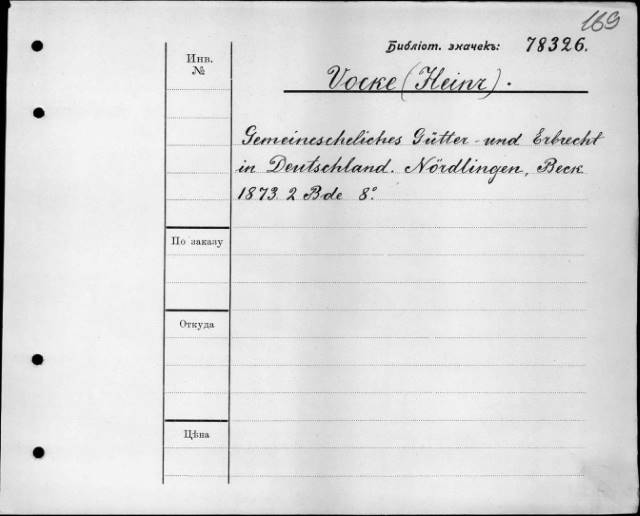 169
Библіот. значекъ: 78326.
Инв.
№
Vocke (Heinr).
Gemeinescheliches Gütter- und Erbrecht
in Deutschland. Nördlingen, Beck
1873. 2 Bde 8°.
По заказу
Откуда
Цѣна